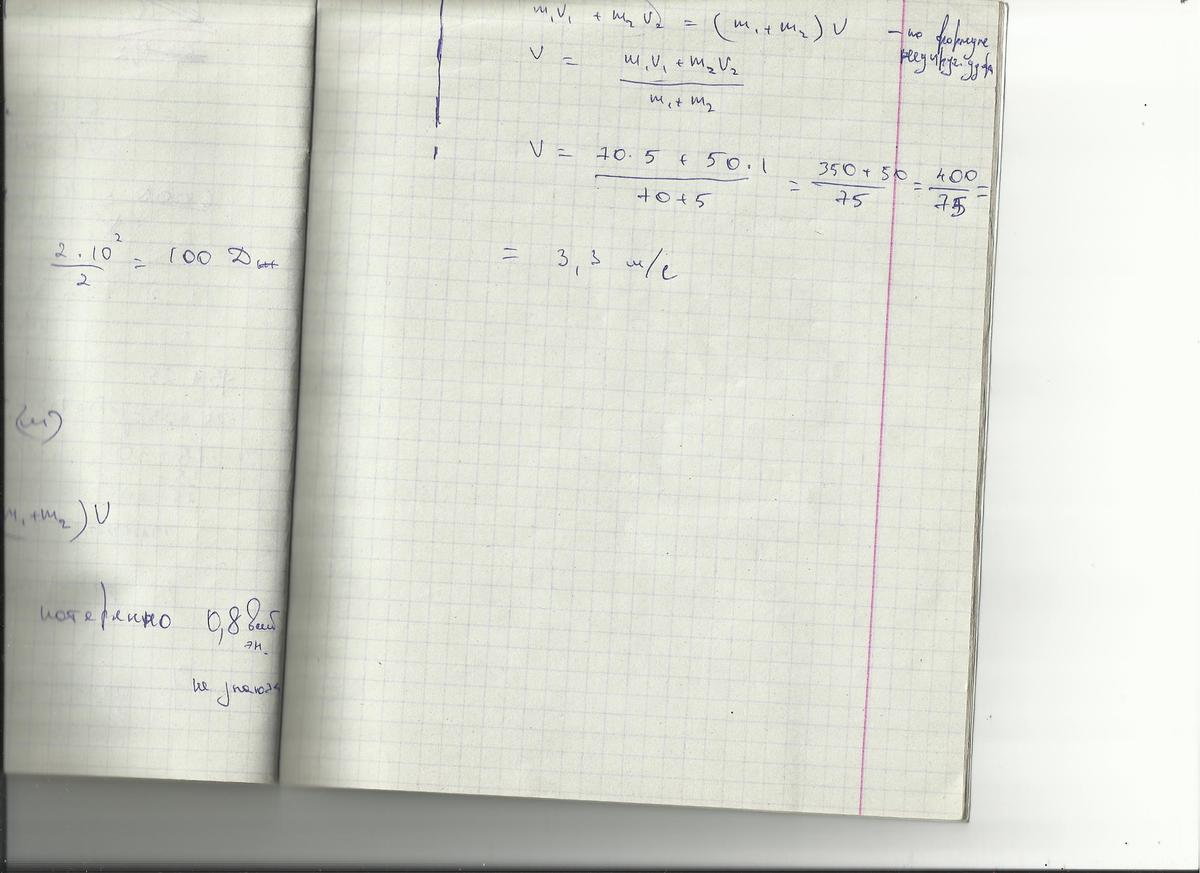 2 · 10² / 2 = 100 Дж
(м)
m₁+m₂)V
потерянно 0,8 
эн.
не
m₁V₁ + m₂V₂ = (m₁+m₂)V – по формуле
V = m₁V₁ + m₂V₂ / m₁+m₂
V = 70·5 + 50·1 / 70+5 = 350+50 / 75 = 400 / 75 =
= 3,3 м/с